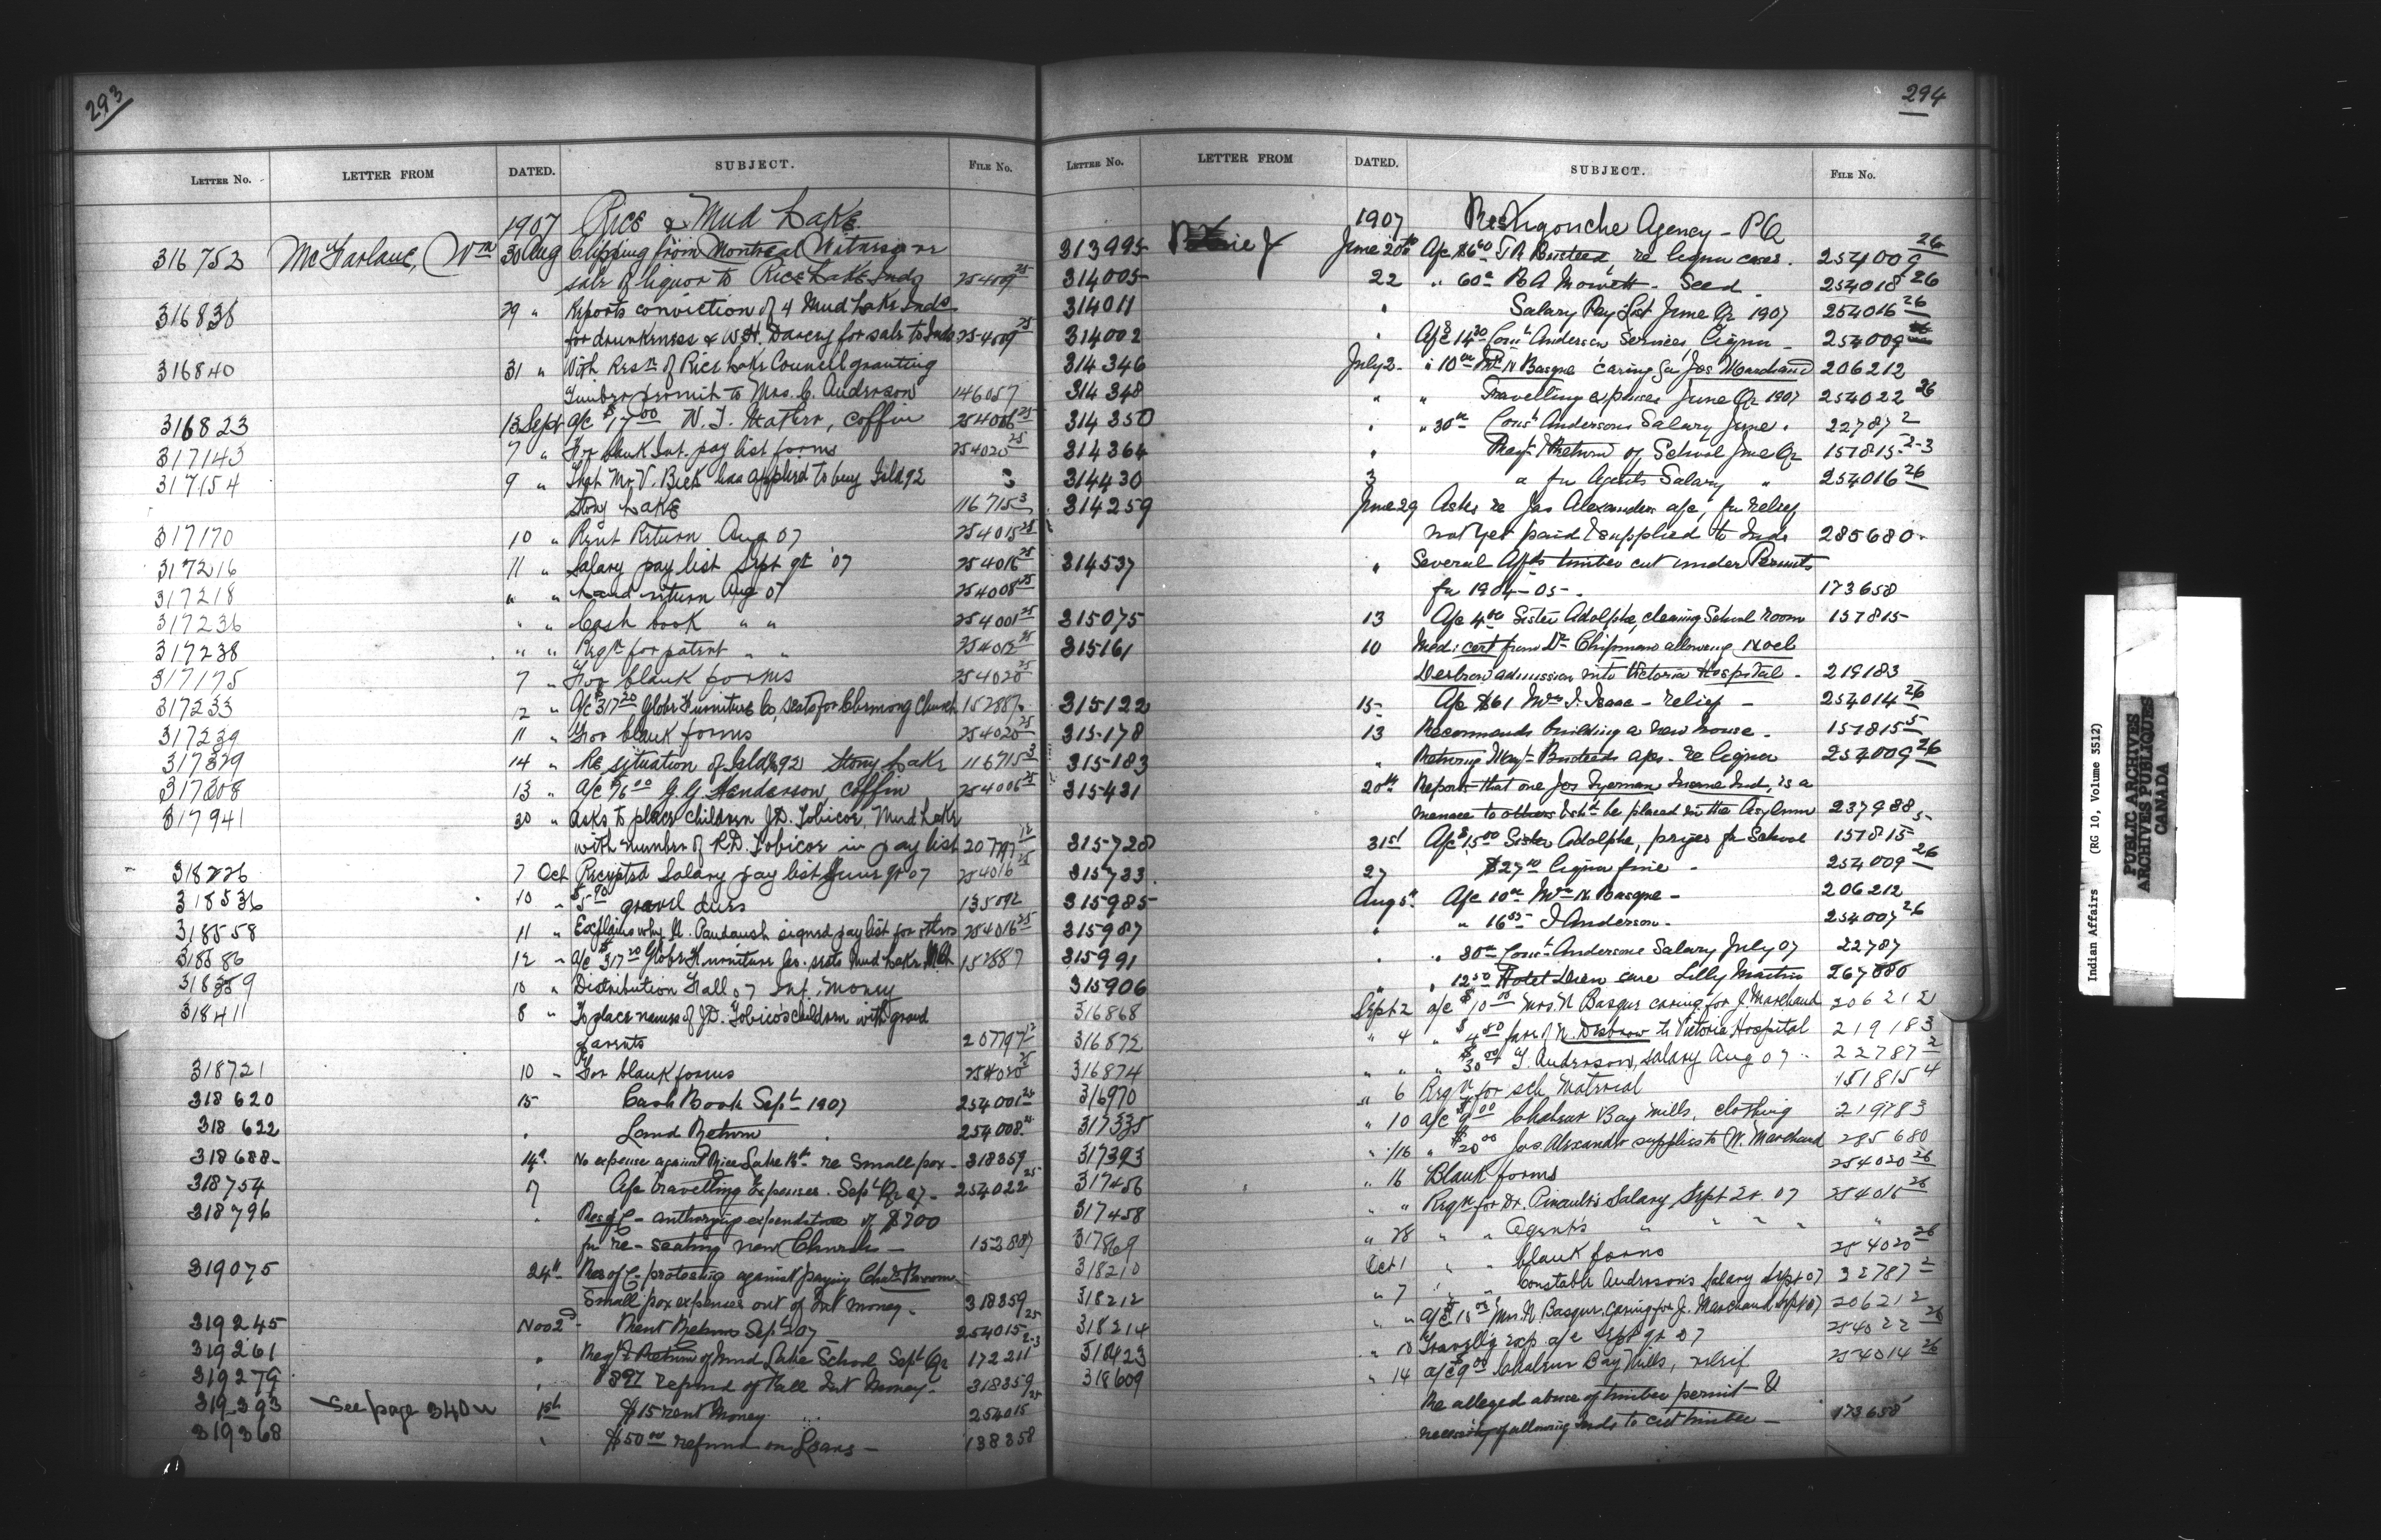 293
LETTER No. LETTER FROM DATED. SUBJECT. FILE No.
1907 Rice & Mud Lake
316752 McFarlane, Wm 30 Aug Clipping from Montreal Witness re
sale of liquor to Rice Lake Inds 254009 25
316838 29 " Reports conviction of 4 Mud Lake Inds
for drunkenness & W.H. Darcey for sale to Inds 254009 25
316840 31 " With Resn of Rice Lake Council granting
Timber permit to Mrs. C. Anderson 146057
316823 13 Sept a/c $17 00 N. T. Mather, coffin 254006 25
317143 7 " For blank Int. pay list forms 254020 25
317154 9 " That Mr V. Beck has applied to buy Isld 92
Stony Lake 116715 3
317170 10 " Rent Return Aug 07 254015 25
317216 11 " Salary pay list Sept qr '07 254016 25
317218 " " Land return Aug 07 254008 25
317236 " " Cash book " " 254001 25
317238 " " Reqn for patent " " 25
317175 7 " For blank forms 254020 25
317233 12 " a/c $317 20 Globe Furniture Co, seats for Church 152887
317239 11 " For blank forms 254020 25
317329 14 " Re situation of Isld 92 Stony Lake 116715 3
317208 13 " a/c $6 00 G. G. Henderson, coffin 254006 25
317941 30 " Asks to place children J.D. Tobicoe, Mud Lake
with number of R.D. Tobicoe in pay list 207797 12
318226 7 Oct Receipted Salary pay list June qr 07 254016 25
318536 10 " $5 90 gravel dues 135092
318558 11 " Explains why M. Paudash signed pay list for others 254016 25
318586 12 " a/c $317 20 Globe Furniture Co. seats Mud Lake 152887
318359 10 " Distribution Fall 07 Int. Money
318411 8 " To place names of J.D. Tobicos children with grand
parents 207797 12
318721 10 " For blank forms 254020 25
318620 15 Cash Book Sept 1907 254001 25
318622 " Land Return 254008 25
318688 14th No expense against Rice Lake Bd re Small pox - 318359
318754 7 A/c travelling Expenses. Sept Qr 07 - 254022 25
318796 " Res of C - authorizing expenditure of $700
for re-seating new Church - 152887
319075 24th Res of C - protesting against paying Chas
Small pox expenses out of Int money - 318359
319245 Nov 2d - Rent Return Sept 07 254015 25
319261 " Reqn & Return of Mud Lake School Sept Qr 172211 2-3
319279 " $897 refund of Fall Int Money - 318359
319393 See page 340 w 1st $15 rent Money 254015 25
319368 " $50 00 refund on Loans - 138358
294
LETTER No. LETTER FROM DATED. SUBJECT. FILE No.
1907 Restigouche Agency - PQ
313995 June 20th A/c $6 60 T A Busteed re liquor cases. 254009 26
314005 22 " 60c R A Mowett - Seed 254018 26
314011 " Salary Pay List June Qr 1907 254016 26
314002 " A/c $14 30 Const Anderson Services Liquor - 254009
314346 July 2 " 10 00 Mrs N Basque caring for Jos Marchand 206212
314348 " " Travelling expenses June Qr 1907 254022 26
314350 " " 30 00 Const Andersons Salary June. 22787 2
314364 " Reqn & Return of School June Qr 157815 2-3
314430 3 " for Agents Salary " 254016 26
314259 June 29 Asks re Jas Alexander a/c, for relief
not yet paid & supplied to Inds 285680
314537 " Several Affts timber cut under Permits
for 1904-05 - 173658
315075 13 A/c 4 00 Sister Adolphe, cleaning School room 157815
315161 10 Med: cert from Dr Chipman allowing Noel
admission into Victoria Hospital - 219183
315122 15 A/c $61 Mrs I. Isaac - relief - 254014 26
315178 13 Recommends building a new house - 157815 5
315183 " Returning Busteeds a/cs - re liquor 254009 26
315431 20th Reports that one Jos Insane Ind, is a
menace to others & shd be placed in the Asylum 237988
315728 31st A/c $15 00 Sister Adolphe, prizes for School 157815 5
315733 27 $27 00 liquor fine - 254009 26
315985 Aug 5 A/c 10 00 Mrs N Basque - 206212
315987 " " 16 55 J Anderson - 254007 26
315991 " " 30 00 Const Andersons Salary July 07 22787
315906 " " 12 50 Hotel Dieu care Lilly Martin 267880
316868 Sept 2 a/c $10 00 Mrs. N Basque caring for J. Marchand 206212
316872 " 4 " $4 80 fare of N. Disbrow to Victoria Hospital 219183
316874 " " " $30 00 T. Anderson, salary Aug 07 22787 2
316970 " 6 Reqn for sch. Material 151815 4
317335 " 10 a/c $9 00 Chaleur Bay Mills, clothing 219783
317393 " 16 " $20 00 Jas. Alexander supplies to W. Marchand 285680
317456 " 16 Blank forms 254020 26
317458 " " Reqn for Dr. Pinault's Salary, Sept Qr. 07 254016 26
317869 " 28 " " Agent's " " " " "
318210 Oct 1 " " blank forms 254020 26
318212 " 7 " " Constable Anderson's Salary Sept 07 22787 2
318214 " " a/c $15 00 Mrs. N. Basque, caring for J. Marchand Sept 07 206212
318423 " 10 Travell'g exp. a/c Sept qr 07 254022 26
318609 " 14 a/c $9 00 Chaleur Bay Mills, relief 254014 26
Re alleged abuse of timber permit - &
necessity of allowing Inds to cut timber - 173658
Indian Affairs (RG 10, Volume 3512)
PUBLIC ARCHIVES
ARCHIVES PUBLIQUES
CANADA